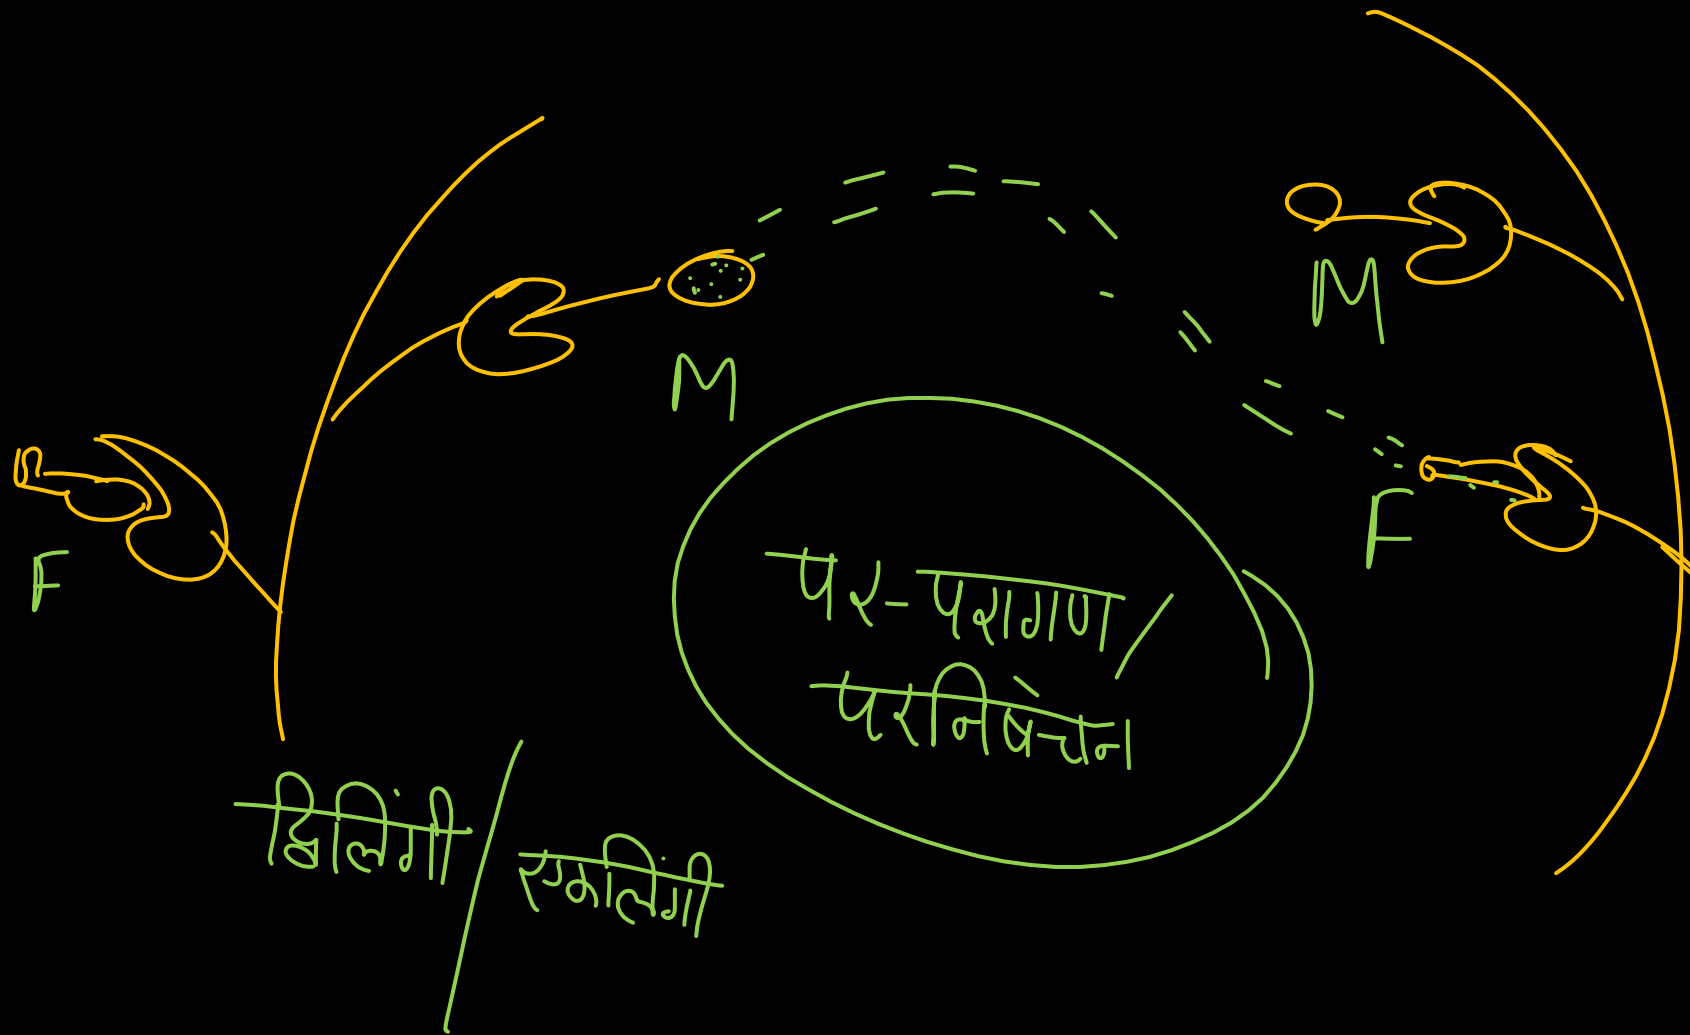 M
M
F
F
पर-परागण/
परनिषेचन
द्विलिंगी/
एकलिंगी